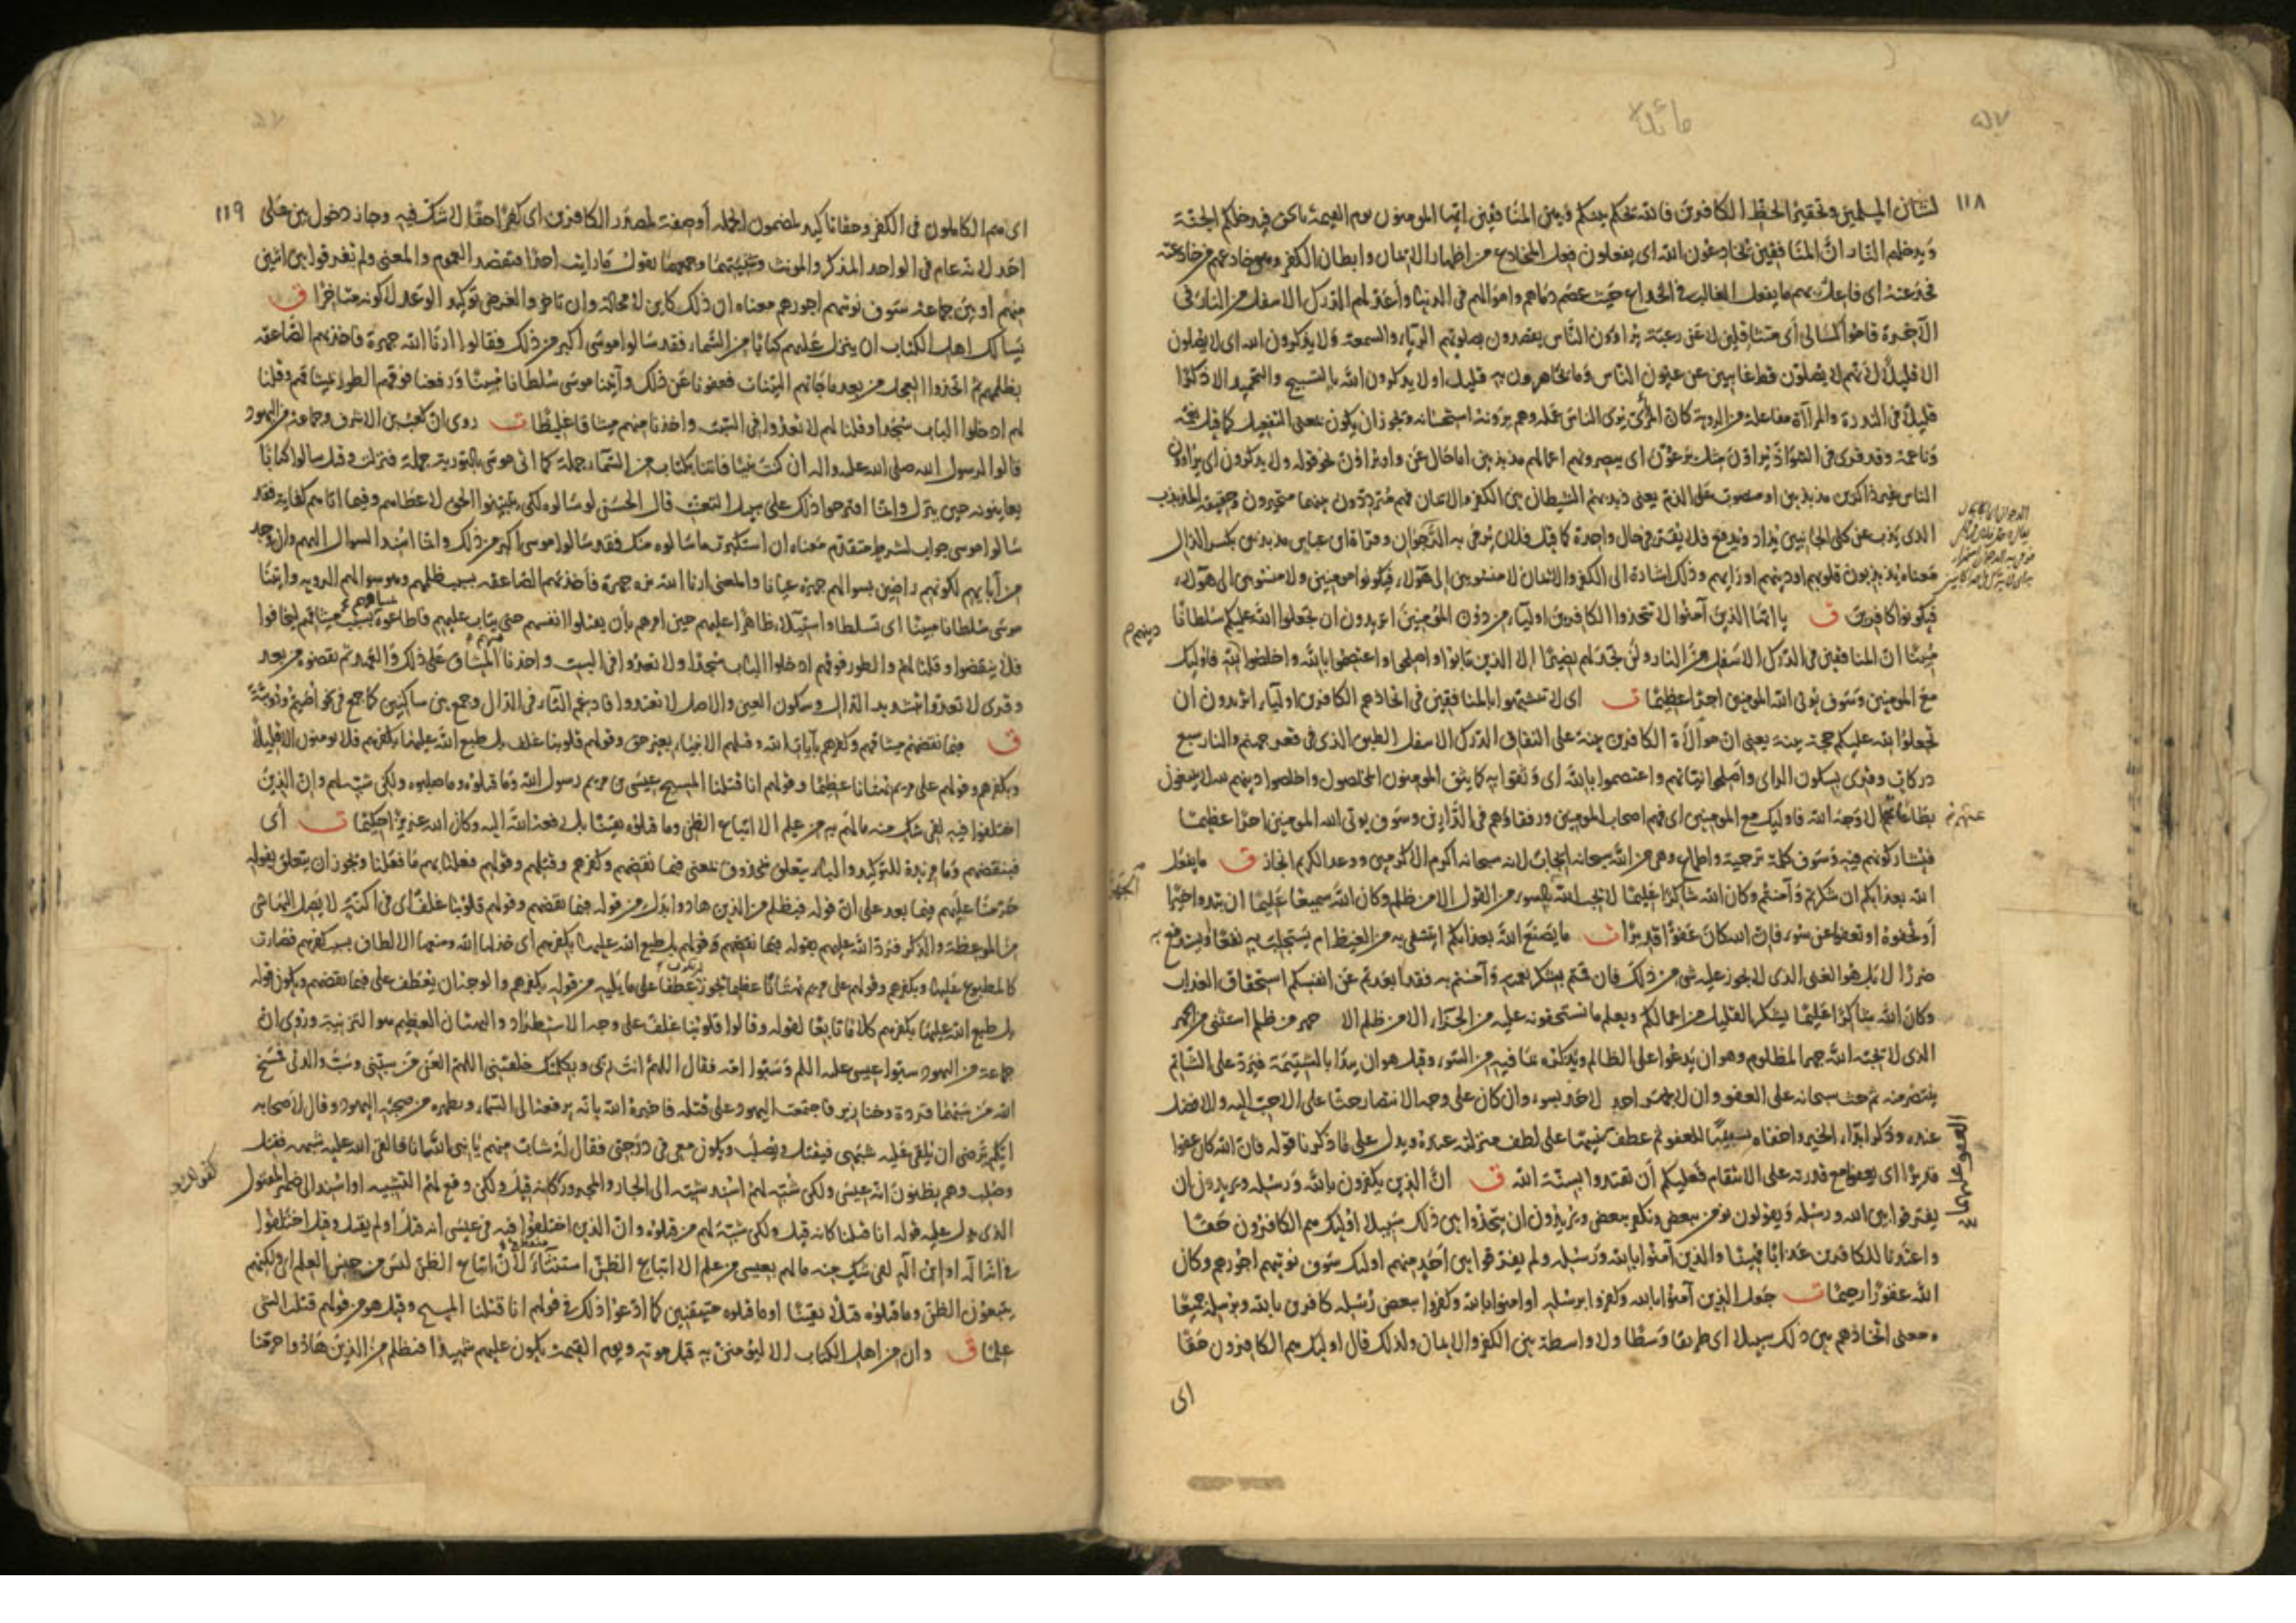 ١١٨
لشان المسلمين وتحقير الحظ الكافرين فالله يحكم بينكم وبين المنافقين ايها المومنون يوم القيمة بالحق فيدخلكم الجنة
ويدخلهم النار ان المنافقين يخادعون الله اى يفعلون فعل المخادع من اظهار الايمان وابطان الكفر وهو خادعهم من خادعته
فخدعته اى فاعل بهم ما يفعل الغالب فى الخداع حيث عصم دماهم واموالهم فى الدنيا واعد لهم الدرك الاسفل من النار فى
الآخرة قاموا كسالى أى متثاقلين لا عن رغبة يراؤن الناس يقصدون بصلوتهم الرياء والسمعة ولا يذكرون الله اى لا يصلون
الا قليلا لانهم لا يصلون قط غايبين عن عيون الناس وما يجاهرون به قليل او لا يذكرون الله بالتسبيح والتحميد الا ذكرا
قليلا فى الندرة والمرآاة مفاعلة من الروية كان المرئ يرى الناس عمله وهم يرونه استحسانه ويجوز ان يكون بمعنى التفعيل كما قيل نعّمه
وناعمه وقد قرى فى الشواذ يرأون مثل يرعون اى يبصرونهم اعمالهم مذبذبين اما حال عن واو يراؤن نحو قوله ولا يذكرون اى يراؤن
الناس غير ذاكرين مذبذبين او منصوب على الذم يعنى ذبذبهم الشيطان بين الكفر والايمان فهم مترددون بينهما متحيرون وحقيقة المذبذب
الذى يذب عن كلى الجانبين يذاد ويدفع فلا يقر فى حال واحدة كما قيل فلان يرمى به الرجوان وقرأة ابن عباس مذبذبين بكسر الذال
معناه يذبذبون قلوبهم او دينهم او رايهم وذلك اشارة الى الكفر والايمان لا منسوبين الى هؤلاء فيكونوا مومنين ولا منسوبين الى هؤلاء
فيكونوا كافرين ق يا ايها الذين آمنوا لا تتخذوا الكافرين اولياء من دون المؤمنين اتريدون ان تجعلوا لله عليكم سلطانا
مبينا ان المنافقين فى الدرك الاسفل من النار ولن تجد لهم نصيرا الا الذين تابوا واصلحوا واعتصموا بالله واخلصوا لله فاوليك
دينهم
مع المومنين وسوف يوتى الله المومنين اجرا عظيما ت اى لا تتشبهوا بالمنافقين فى اتخاذهم الكافرين اولياء اتريدون ان
تجعلوا لله عليكم حجة بينة يعنى ان موالاة الكافرين بينة على النفاق الدرك الاسفل الطبق الذى فى قعر جهنم والنار سبع
دركات وقرى بسكون الراى واصلحوا نياتهم واعتصموا بالله اى وثقوا به كما يثق المومنون المخلصون واخلصوا دينهم لله لا يبتغون
بطاعاتهم الا وجه الله فاوليك مع المومنين اى فهم اصحاب المومنين ورفقاؤهم فى الدارين وسوف يوتى الله المومنين اجرا عظيما
فيشاركونهم فيه وسوف كلمة ترجية واطماع وهى من الله سبحانه ايجاب لانه سبحانه اكرم الاكرمين ووعد الكريم انجاز ق ما يفعل
الله بعذابكم ان شكرتم وآمنتم وكان الله شاكرا عليما لا يحب الله بالسوء من القول الا من ظلم وكان الله سميعا عليما ان تبدوا خيرا
الجهر
أو تخفوه او تعفوا عن سوء فان الله كان عفوا قديرا ت ما يصنع الله بعذابكم ايتشفى به من الغيظ ام يستجلب به نفعا او يستدفع به
ضررا لا بل هو الغنى الذى لا يجوز عليه شى من ذلك فان قمتم بشكر نعمه وآمنتم به فقد ابعدتم عن انفسكم استحقاق العذاب
وكان الله شاكرا عليما يشكر القليل من اعمالكم ويعلم ما تستحقونه عليه من الجزاء الا من ظلم الا جهر من ظلم استثنى من الجهر
الذى لا يحبه الله جهر المظلوم وهو ان يدعوا على الظالم ويذكره بما فيه من السوء وقيل هو ان يبدا بالشتيمة فيرد على الشاتم
ينتصر منه ثم حث سبحانه على العفو وان لا يجهر احد لاحد بسوء وان كان على وجه الانتصار حثا على الاحب اليه والافضل
عنده وذكر ابداء الخير واخفاه تسبيبا للعفو ثم عطف عليهما على لطف منزلته عنده ويدل على ما ذكرنا قوله فان الله كان عفوا
قديرا اى يعفوا مع قدرته على الانتقام فعليكم أن تقتدوا بسنة الله ق ان الذين يكفرون بالله ورسله ويريدون ان
يفرقوا بين الله ورسله ويقولون نومن ببعض ونكفر ببعض ويريدون ان يتخذوا بين ذلك سبيلا اوليك هم الكافرون حقا
واعتدنا للكافرين عذابا مهينا والذين آمنوا بالله ورسله ولم يفرقوا بين أحد منهم اوليك سوف نوتيهم اجورهم وكان
الله غفورا رحيما ت جعل الذين آمنوا بالله وكفروا برسله او امنوا بالله وكفروا ببعض رسله كافرين بالله وبرسله جميعا
ومعنى اتخاذهم بين ذلك سبيلا اى طريقا وسطا ولا واسطة بين الكفر والايمان ولذلك قال اوليك هم الكافرون حقا
اى
١١٩
اى هم الكاملون فى الكفر وحقا تاكيد لمضمون الجمله أو صفة لمصدر الكافرين اى كفرا حقا لا شك فيه وجاز دخول بين على
احد لانه عام فى الواحد المذكر والمونث وتثنيتهما وجمعهما تقول ما رايت احدا فتقصد العموم والمعنى ولم يفرقوا بين اثنين
منهم او بين جماعة سوف نوتيهم اجورهم معناه ان ذلك كاين لا محالة وان تاخر والغرض توكيد الوعد لا كونه متاخرا ق
يسالك اهل الكتاب ان ينزل عليهم كتابا من السماء فقد سالوا موسى اكبر من ذلك فقالوا ارنا الله جهرة فاخذتهم الصاعقة
بظلمهم ثم اتخذوا العجل من بعد ما جاتهم البينات فعفونا عن ذلك وآتينا موسى سلطانا مبينا ورفعنا فوقهم الطور بميثاقهم وقلنا
لهم ادخلوا الباب سجدا وقلنا لهم لا تعدوا فى السبت واخذنا منهم ميثاقا غليظا ت روى ان كعب بن الاشرف وجماعة من اليهود
قالوا لرسول الله صلى الله عليه واله ان كنت نبيا فاتنا بكتاب من السماء جملة كما اتى موسى بالتورية جملة فنزلت وقيل سالوا كتابا
يعاينونه حين ينزل وانما اقترحوا ذلك على سبيل التعنت قال الحسن لو سالوه لكى يتبينوا الحق لاعطاهم وفيما اتاهم كفاية فقد
سالوا موسى جواب لشرط مقدر معناه ان استكبرت ما سالوه منك فقد سالوا موسى اكبر من ذلك وانما اسند السوال اليهم وان وجد
من آبايهم لكونهم راضين بسوالهم جهرة عيانا والمعنى ارنا الله نره جهرة فأخذتهم الصاعقه بسبب ظلمهم وهو سوالهم الرويه واتينا
موسى سلطانا مبينا اى تسلطا واستيلاء ظاهرا عليهم حين امرهم بأن يقتلوا انفسهم حتى يتاب عليهم فاطاعوه بسبب ميثاقهم ليخافوا
فلا ينقضوا وقلنا لهم والطور فوقهم ادخلوا الباب سجدا ولا تعدوا فى السبت واخذنا الميثاق على ذلك والعهد ثم نقضوه من بعد
وقرى لا تعدوا بتشديد الدال وسكون العين والاصل لا تعتدوا فادغم التاء فى الدال وجمع بين ساكنين كما جمع فى نحو
ق فبما نقضهم ميثاقهم وكفرهم بآيات الله وقتلهم الانبياء بغير حق وقولهم قلوبنا غلف بل طبع الله عليها بكفرهم فلا يومنون الا قليلا
وبكفرهم وقولهم على مريم بهتانا عظيما وقولهم انا قتلنا المسيح عيسى بن مريم رسول الله وما قتلوه وما صلبوه ولكن شبه لهم وان الذين
اختلفوا فيه لفى شك منه ما لهم به من علم الا اتباع الظن وما قتلوه يقينا بل رفعه الله اليه وكان الله عزيزا حكيما ت أى
فبنقضهم وما مزيدة للتوكيد والباء يتعلق بمحذوف بمعنى فبما نقضهم وكفرهم وقتلهم وقولهم فعلنا بهم ما فعلنا ويجوز ان يتعلق بقوله
حرمنا عليهم فيما بعد على ان قوله فبظلم من الذين هادوا بدل من قوله فبما نقضهم وقولهم قلوبنا غلف اى فى اكنة لا يصل اليها شى
من الموعظة والذكر فرد الله عليهم بقوله بل طبع الله عليها بكفرهم اى خذلها الله ومنعها الالطاف بسبب كفرهم فصارت
كالمطبوع عليها وبكفرهم وقولهم على مريم بهتانا عظيما يجوز عطفا على ما يليه من قوله بكفرهم والوجه ان يعطف على فبما نقضهم ويكون قوله
بل طبع الله عليها بكفرهم كلاما تابعا لقوله وقالوا قلوبنا غلف على وجه الاستطراد والبهتان العظيم هو التزنية وروى ان
جماعة من اليهود سبوا عيسى عليه السلم وسبوا امه فقال اللهم انت ربى وبكلمتك خلقتنى اللهم العن من سبنى وسب والدتى فمسخ
الله من سبهما قردة وخنازير فاجتمعت اليهود على قتله فاخبره الله بانه يرفعه الى السماء ويطهره من صحبة اليهود وقال لاصحابه
ايكم يرضى ان يلقى عليه شبهى فيقتل ويصلب ويكون معى فى درجتى فقال له شاب منهم يا نبى الله انا فالقى الله عليه شبهه فقتل
وصلب وهم يظنون انه عيسى ولكن شبه لهم اسند شبه الى الجار والمجرور كانه قيل ولكن وقع لهم التشبيه او اسند الى ضمير المقتول
الذى يدل عليه قوله انا قتلنا كانه قيل ولكن شبه لهم من قتلوه وان الذين اختلفوا فيه فى عيسى انه قتل او لم يقتل وقيل اختلفوا
فى انه اله او ابن اله لفى شك منه ما لهم بعيسى من علم الا اتباع الظن استثناء لان اتباع الظن ليس من جنس العلم اى ولكنهم
يتبعون الظن وما قتلوه قتلا يقينا او ما قتلوه متيقنين كما ادعوا ذلك فى قولهم انا قتلنا المسيح وقيل هو من قولهم قتلت الشى
علما ق وان من اهل الكتاب الا ليؤمنن به قبل موته ويوم القيمة يكون عليهم شهيدا فبظلم من الذين هادوا حرمنا